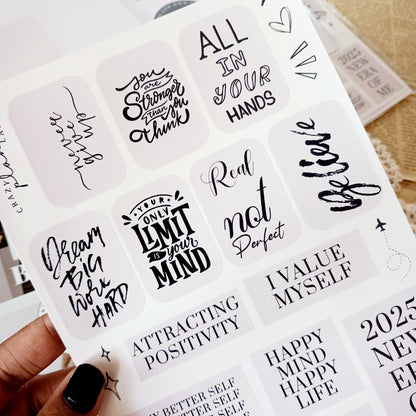 never
give
up
you
are
Stronger
than you
think
ALL
IN
YOUR
HANDS
2025
NEW
ERA
OF
ME
CRAZY
Dream
BIG
Work
HARD
YOUR
ONLY
LIMIT
IS your
MIND
Real
not
Perfect
Believe
ATTRACTING
POSITIVITY
I VALUE
MYSELF
BETTER SELF
BETTER SELF
HAPPY
MIND
HAPPY
LIFE
2025
NEW
ERA